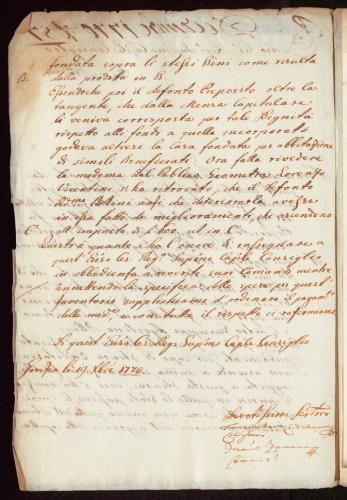 fondata sopra li stessi Beni come risulta
B. dalla prodota in B.
Essendochè poi il defonto Preposto oltre la
tangente, che dalla Mensa Capitolare
li veniva corrisposta per tale Dignità
rispetto alli fondi a quella incorporati
godeva altresì la Casa fondata per abbitazione
di simili Beneficiati. Ora fatta rivedere
la medema dal Publico Geometra Lorenzo
Vicentini s'ha ritrovato, che il defonto
anzi che deteriorarla avesse
in essa fatti de miglioramenti, che ascendono
C. all'importo di f. 200. ut in C.
Questo è quanto s'ha l'onore di rassegnare a
quest' Eccso Ces. Reg.o Supmo Caple Consiglio
in obbedienza a' veneriti suoi Comandi, mentre
rimettendo la specifica delle spese per quest'
Inventario supplichiamo d'ordinare il pagamto
delle med.e, e con tutto il rispetto ci raffermiamo
Di quest' Eccso Ces. Regio Supmo Caple Consiglio
Gorizia li 19. Xbre 1770.
Devotissimi Servitori